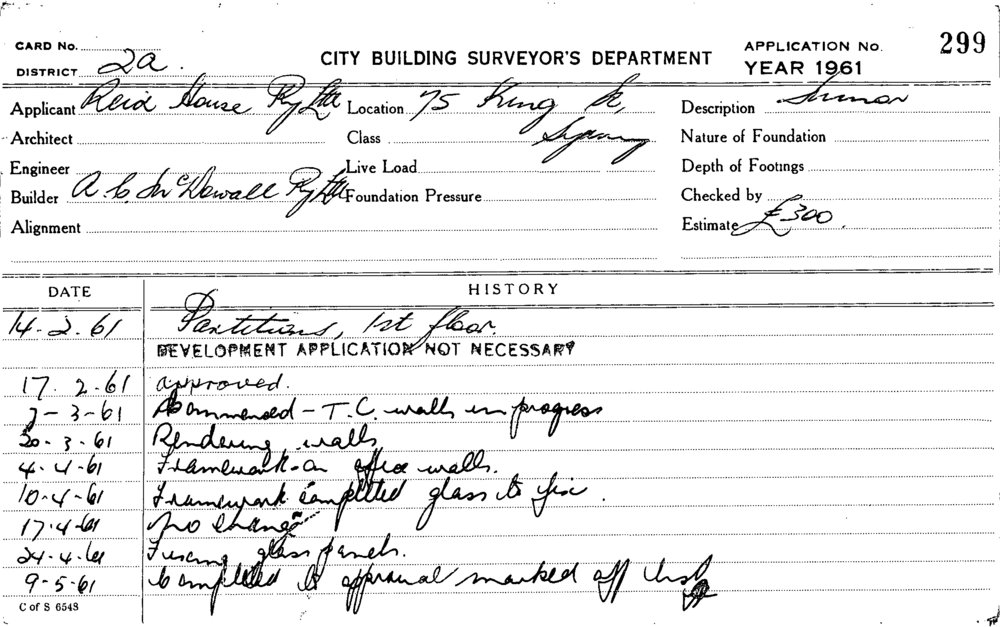 CARD No.
DISTRICT 2a.
CITY BUILDING SURVEYOR'S DEPARTMENT
APPLICATION No. 299
YEAR 1961
Applicant Reid House Pty Ltd Location 75 King St, Description Minor
Architect Class Sydney Nature of Foundation
Engineer Live Load Depth of Footings
Builder A. C. McDowall Pty Ltd Foundation Pressure Checked by
Alignment Estimate £300.
DATE HISTORY
14.2.61 Partitions, 1st floor.
DEVELOPMENT APPLICATION NOT NECESSARY
17.2.61 approved.
7-3-61 Commenced - T.C. walls in progress
20-3-61 Rendering walls
4-4-61 Framework on office walls.
10-4-61 Framework completed glass to fix.
17.4.61 No change
24-4-61 Fixing glass panels.
9-5-61 Completed to approval marked off
C of S 6548